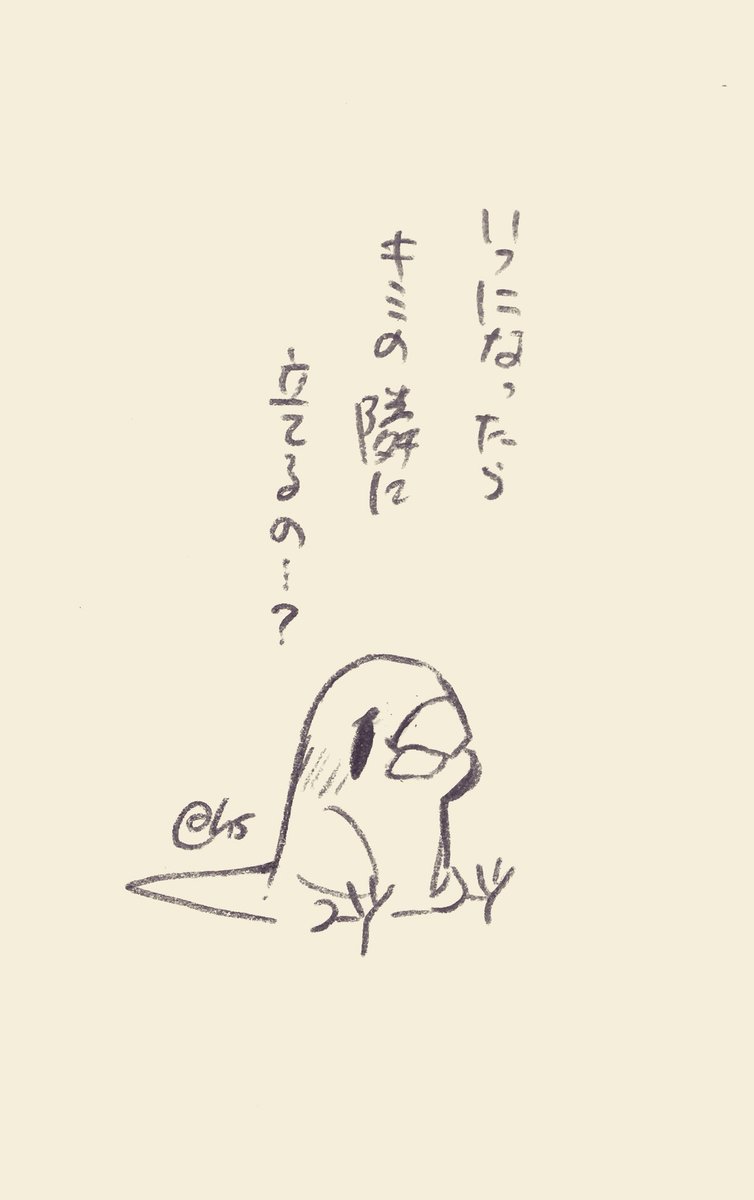 いつになったら
キミの隣に
立てるの…?